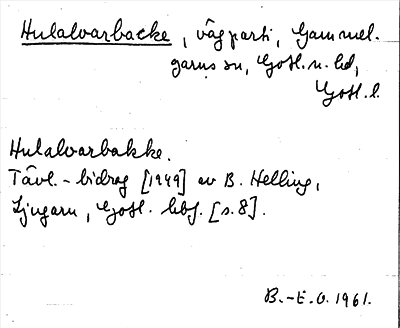 Hulalvarbacke, vägparti, Gammel-
garns sn, Gotl. n. hd,
Gotl. l.
Hulalvarbakke.
Tävl.-bidrag [1949] av B. Helling,
Ljugarn, Gotl. hbf. [s. 8].
B.-E. O. 1961.